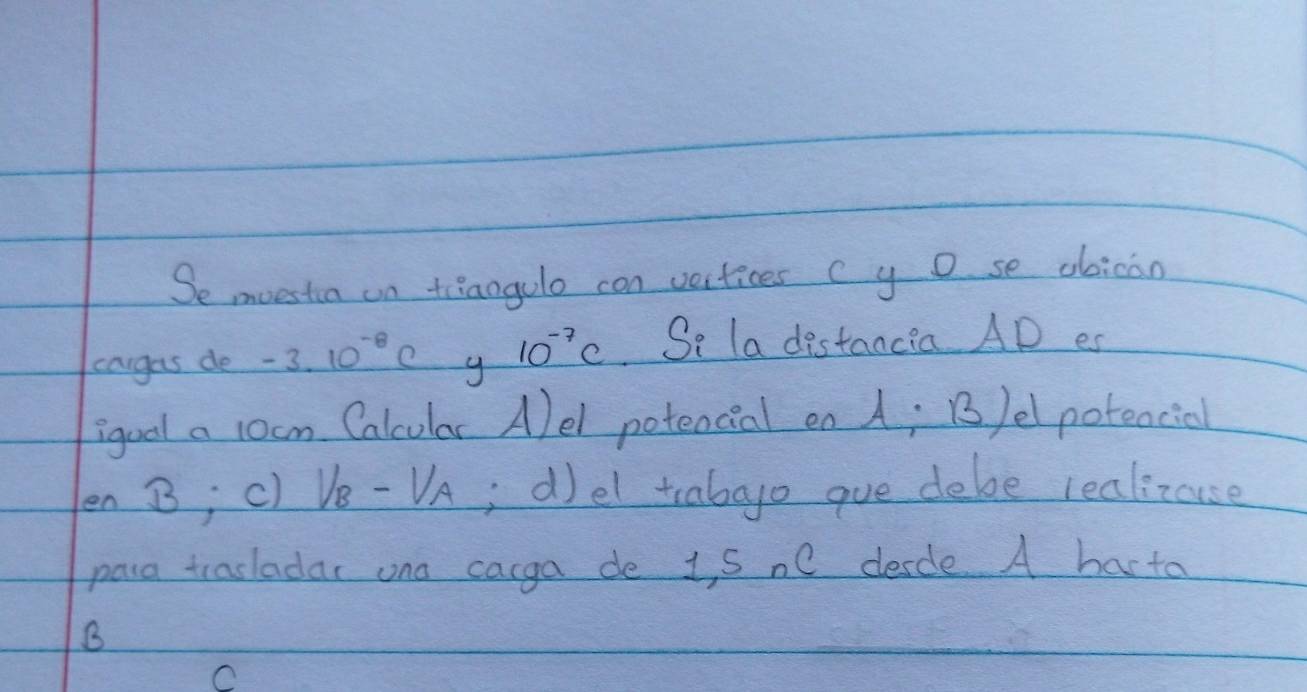 Se muestra un triangulo con vertices C y D se ubicán
cargas de -3.10⁻⁸ C y 10⁻⁷ C. Si la distancia AD es
igual a 10cm. Calcular A) el potencial en A; B) el potencial
en B; c) VB - VA; d) el trabajo que debe realizarse
para trasladar una carga de 1,5 nC desde A hasta
B
C